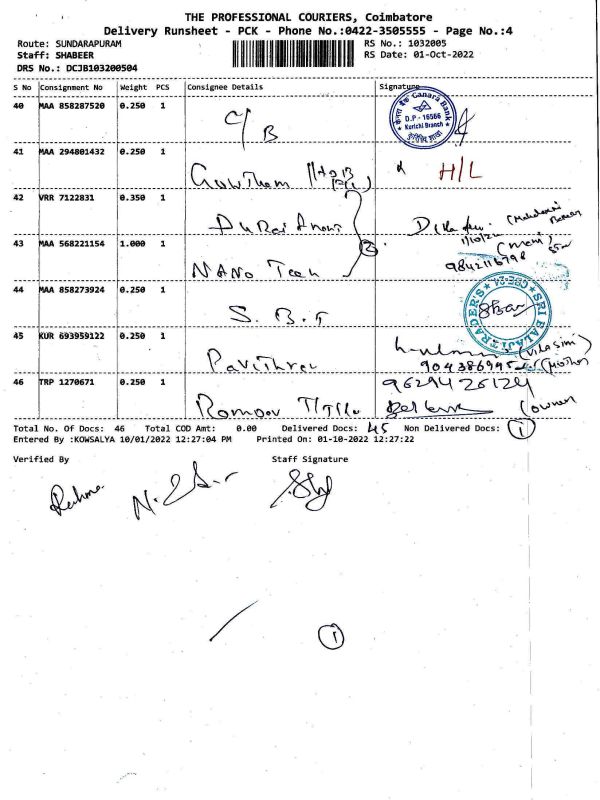 THE PROFESSIONAL COURIERS, Coimbatore
Delivery Runsheet - PCK - Phone No.:0422-3505555 - Page No.:4
Route: SUNDARAPURAM RS No.: 1032005
Staff: SHABEER RS Date: 01-Oct-2022
DRS No.: DCJB103200504
S No Consignment No Weight PCS Consignee Details Signature
40 MAA 858287520 0.250 1 C/B
Canara Bank
D.P - 16566
Kurichi Branch
41 MAA 294801432 0.250 1 Gowtham H/L
42 VRR 7122831 0.350 1
1/10/22
43 MAA 568221154 1.000 1 NANO Tech 2 (mani)
9842116798
44 MAA 858273924 0.250 1 S.B.T
SRI BALAJI TRADERS CBE-24
45 KUR 693959122 0.250 1 Pavithra (Vilasini)
(Mother
46 TRP 1270671 0.250 1 9629426124
(owner
Total No. Of Docs: 46 Total COD Amt: 0.00 Delivered Docs: 45 Non Delivered Docs: 1
Entered By :KOWSALYA 10/01/2022 12:27:04 PM Printed On: 01-10-2022 12:27:22
Verified By Staff Signature
1